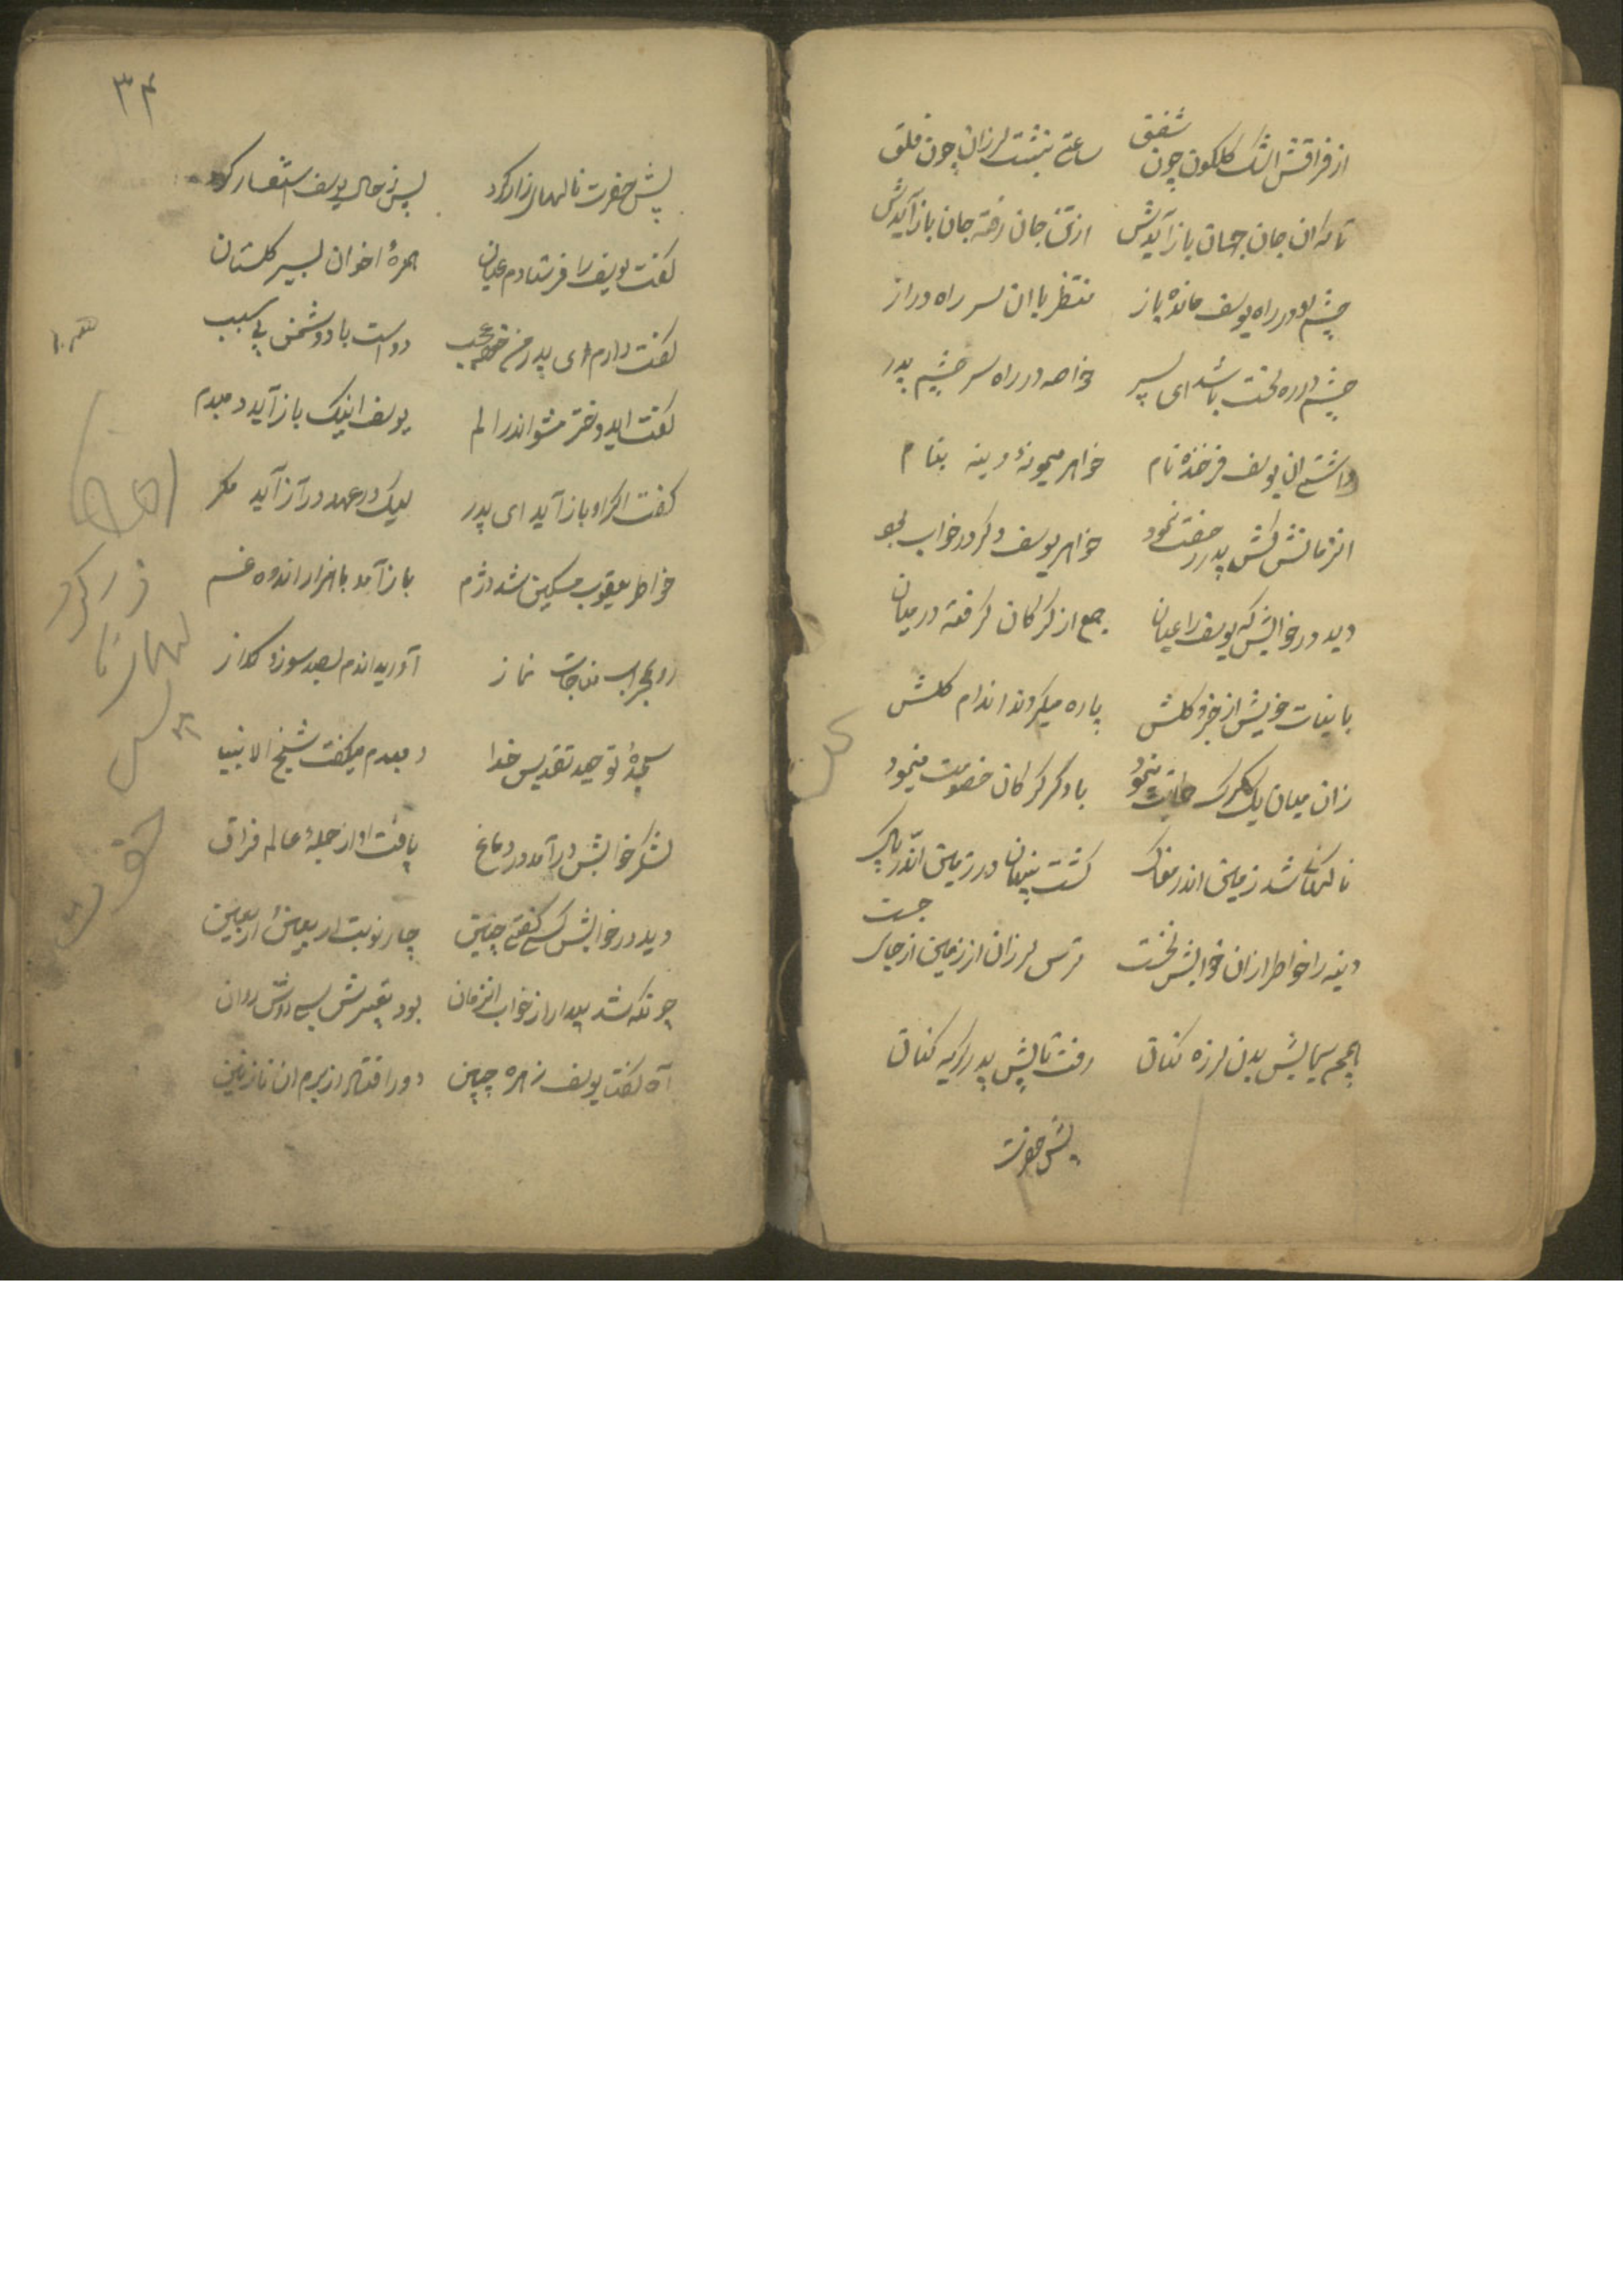 از فراقش اشک گلگون چون شفق ساعتی بنشست لرزان چون قلق
تا که آن جان جهان باز آیدش از تن جان رفته جان باز آیدش
چشم او در راه یوسف مانده باز منتظر با آن سر راه دراز
چشم در ره سخت باشد ای پسر خاصه در راه سر چشم پدر
داشتی آن یوسف فرخنده نام خواهر میمونهٔ دینه بنام
انزمانش کش پدر رخصت نمود خواهر یوسف دگر در خواب بود
دید در خوابش که یوسف را عیان جمع از گرگان گرفته در میان
پاره میکردند اندام گلش
زان میان یک گرگ حمایت مینمود با دگر گرگان خصومت مینمود
ناگهانی شد زمین اندر مغاک گشت پنهان در زمین اندر پاک
دینه را خاطر ازان خوابش نخست ترس لرزان از زمین از جای جست
همچو سیمابش بدن لرزه کنان رفت تا پیش پدر گریه کنان
پیش حضرت
۳۴
پیش حضرت نالهای زار کرد پس ز حال یوسف استفسار کرد
گفت یوسف را فرستادم عیان همرهٔ اخوان بسیر گلستان
گفت دارم ای پدر من عجب دوست با دشمن بی سبب
گفت ای دختر مشو اندر الم یوسف اینک باز آید دمبدم
گفت اگر او باز آید ای پدر لیک در عهد دراز آید مگر
خاطر یعقوب مسکین شد دژم باز آمد با هزار اندوه غم
رو بمحراب مناجات نماز آورید اندم بصد سوز و گداز
سجدهٔ توحید تقدیس خدا دمبدم میگفت شیخ الانبیا
لشکر خوابش درآمد در دماغ یافت او از جملهٔ عالم فراق
دید در خوابش کسی گفتی چنین چار نوبت اربعین اربعین
چونکه شد بیدار از خواب انزمان بود تعبیرش بسی روشن روان
آه گفت یوسف زهره جبین دور افتاد از برم آن نازنین